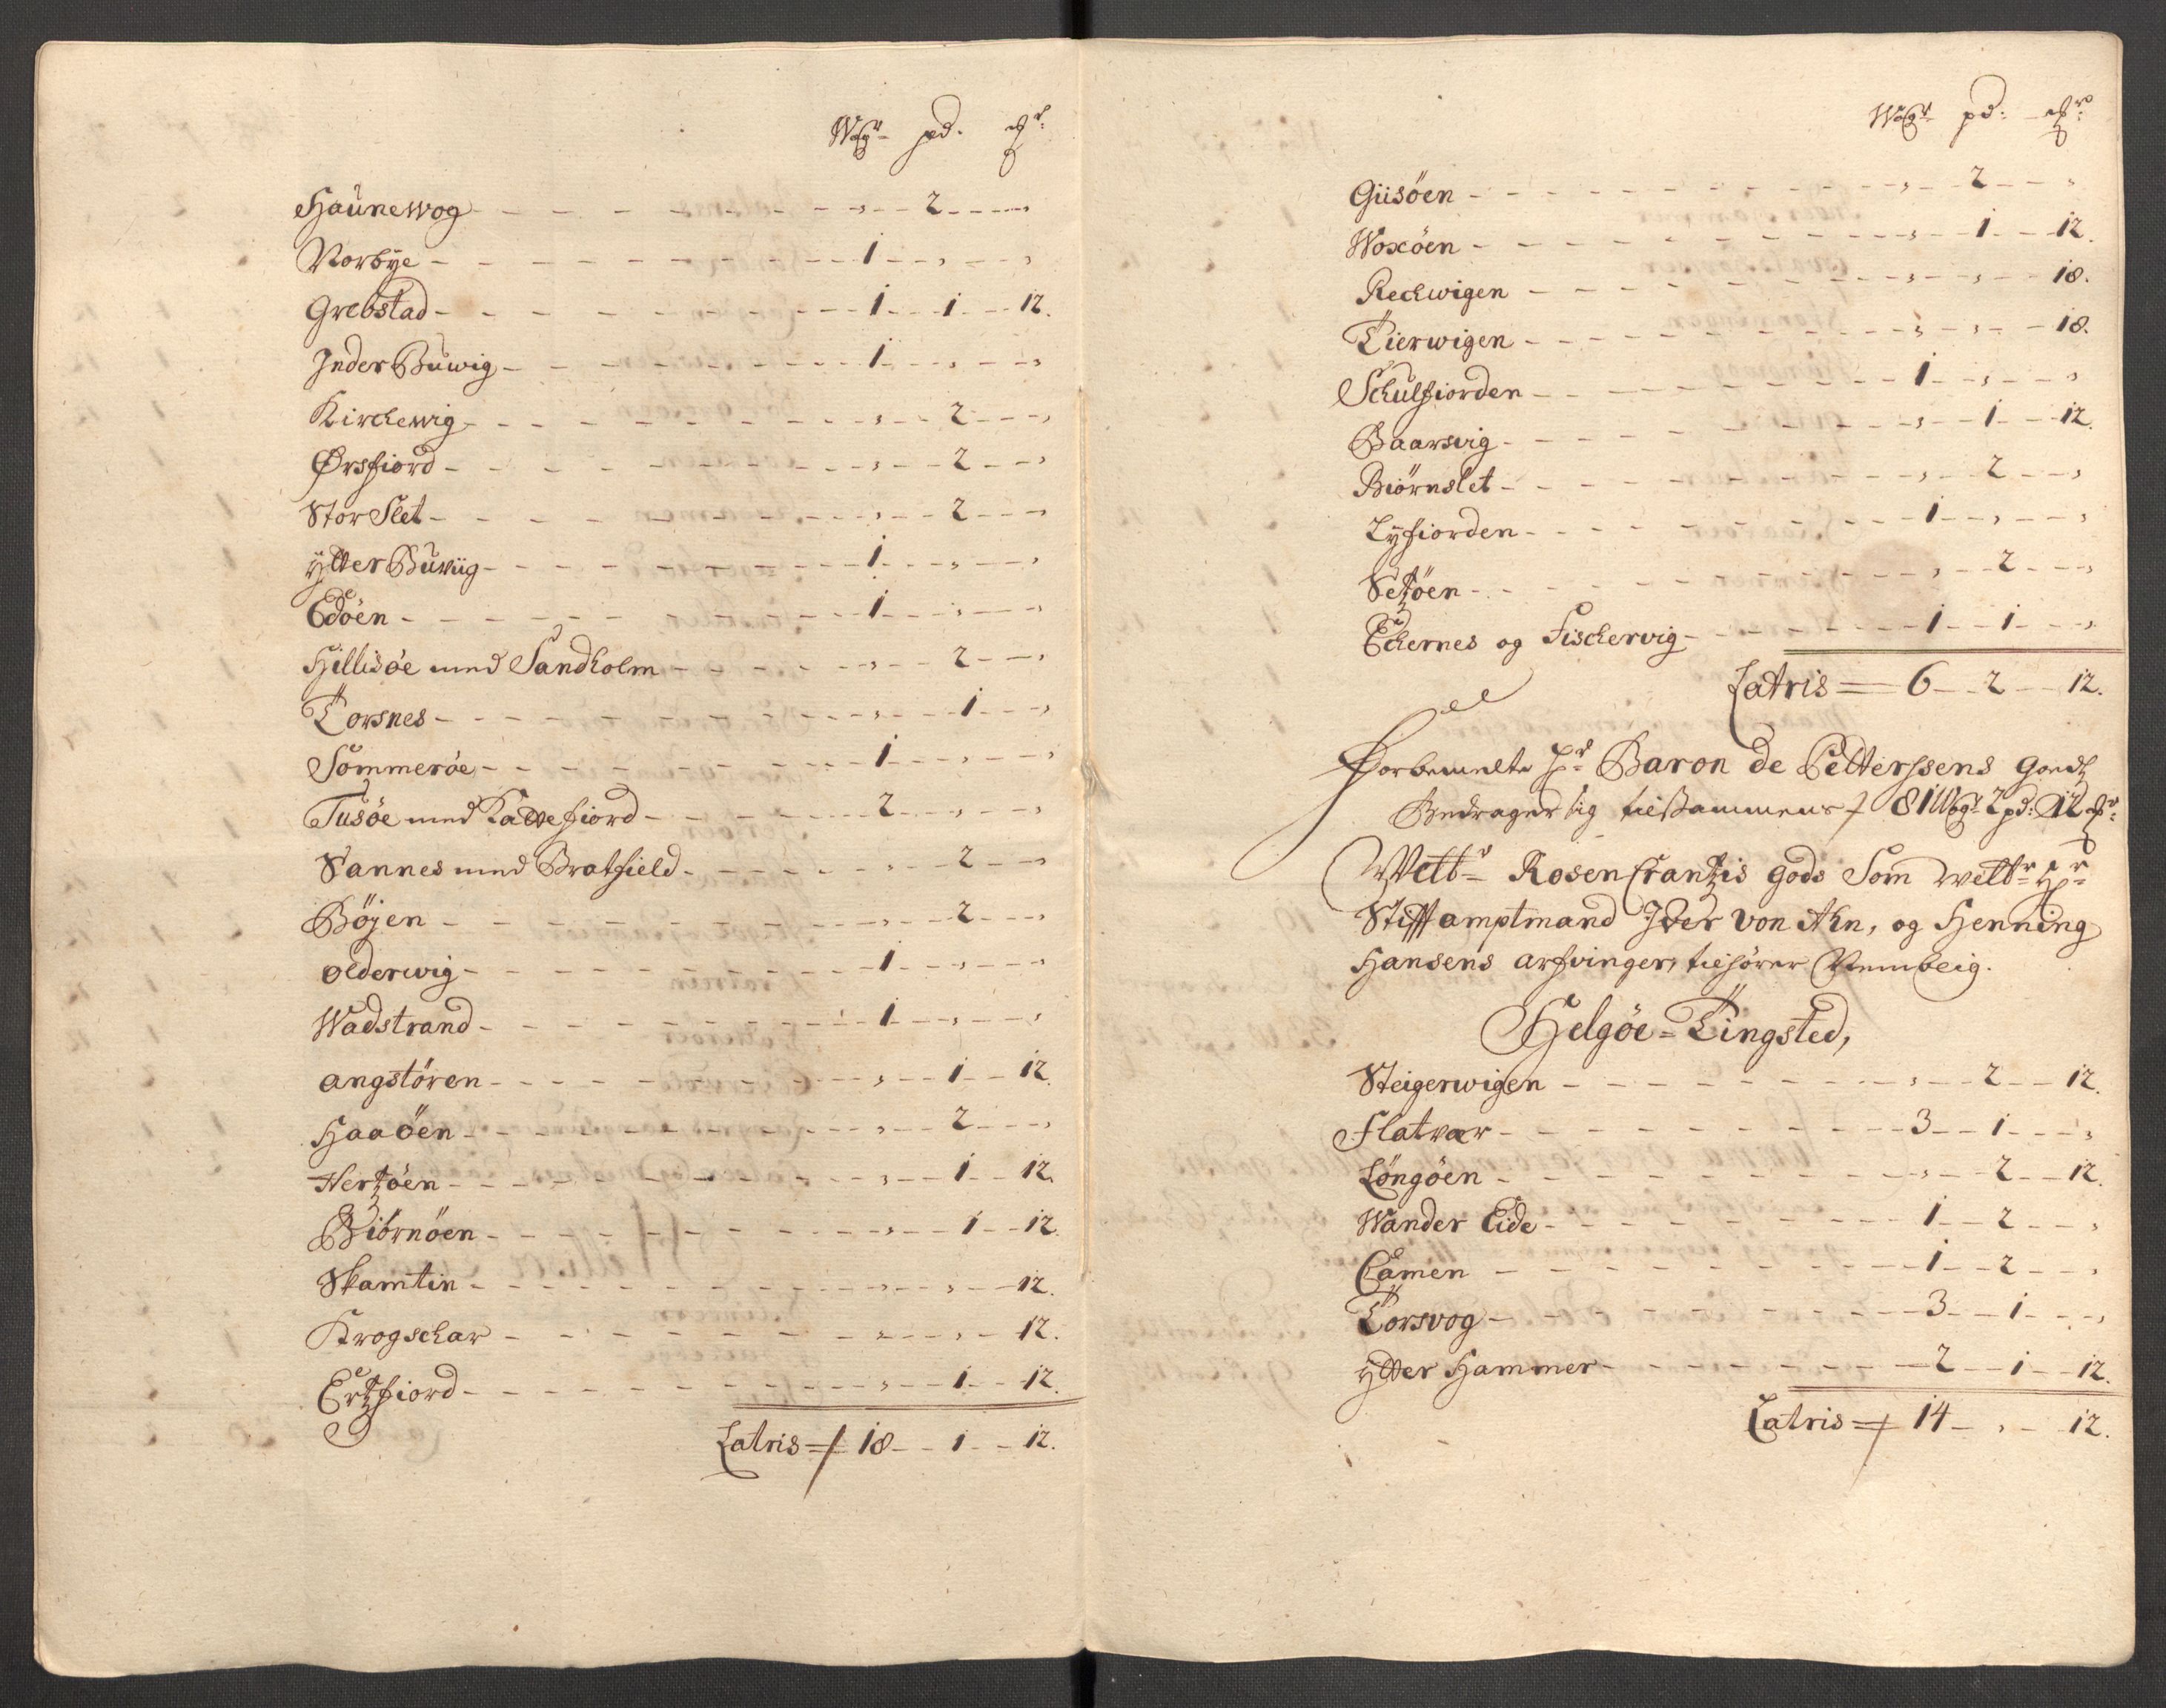 Wogr pd. ℔r:
Haünewog - - - - - - - - „ - - 2 - - - „
Norbye - - - - - - - - 1 - - „ - - „
Grebstad - - - - - - - - 1 - - 1 - - 12.
Inder Buwig - - - - - - - - 1 - - „ - - „
Kirchewig - - - - - - - - „ - - 2 - - „
Ørsfiord - - - - - - - - „ - - 2 - - „
Stor Slet - - - - - - - - „ - - 2 - - „
ÿtter Buwiig - - - - - - - - 1 - - „ - - „
Edöen - - - - - - - - 1 - - „ - - „
Hillisöe med Sandholm - - - - - „ - - 2 - - „
Torsnes - - - - - - - - „ - - 1 - - „
Sommeröe - - - - - - - - 1 - - „ - - „
Tusöe med Kattefiord - - - - - 2 - - „ - - „
Sannes med Bratfield - - - - - „ - - 2 - - „
Böjen - - - - - - - - „ - - 2 - - „
olderwig - - - - - - - - 1 - - „ - - „
Wadstrand - - - - - - - - 1 - - „ - - „
angstören - - - - - - - - „ - - 1 - - 12.
Haaöen - - - - - - - - „ - - 2 - - „
Hertzöen - - - - - - - - „ - - 1 - - 12.
Biörnöen - - - - - - - - „ - - 1 - - 12.
Skamtin - - - - - - - - „ - - „ - - 12.
Krogschar - - - - - - - - „ - - „ - - 12.
Ertzfiord - - - - - - - - „ - - 1 - - 12.
Latris = 18 - - 1 - - 12.
Wogr pd: ℔r:
Giisöen - - - - - - - - „ - - 2 - - „
Woxöen - - - - - - - - „ - - 1 - - 12.
Rechwigen - - - - - - - - „ - - „ - - 18.
Tierwigen - - - - - - - - „ - - „ - - 18.
Schulfiorden - - - - - - - - 1 - - „ - - „
Baarsvig - - - - - - - - „ - - 1 - - 12.
Biörnslet - - - - - - - - „ - - 2 - - „
Lyfiorden - - - - - - - - 1 - - „ - - „
Setzöen - - - - - - - - „ - - 2 - - „
Echernes og Fischervig - - - - - 1 - - 1 - - „
Latris = 6 - - 2 - - 12.
Forbemelte Hr Baron de Petterssens goedtz
Bedrager sig tilsammens 81 Wogr 2 pd: 12 ℔r:
Weltr Rosencrantzis gods Som weltr Hr
Stifftamptmand Ifver von Ahn, og Henning
Hansens arfvinger, tilhörer Nemblig.
Helgöe = Tingsted,
Steigerwigen - - - - - - - - „ - - 2 - - 12.
Flatvær - - - - - - - - 3 - - 1 - - „
Löngöen - - - - - - - - „ - - 2 - - 12.
Wander Eide - - - - - - - - 1 - - 2 - - „
Camen - - - - - - - - 1 - - 2 - - „
Torsvog - - - - - - - - 3 - - 1 - - „
ÿtter Hammer - - - - - - - - 2 - - 1 - - 12.
Latris = 14 - „ - 12.